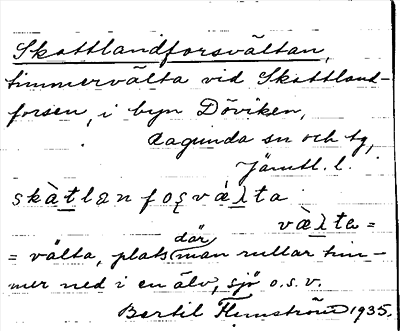 Skottlandforsvältan,
timmervälta vid Skottland-
forsen, i byn Döviken,
Ragunda sn och tg,
Jämtl. l.
skàtlan foʂvæ̀lta
væ̀lta =
= välta, plats där man rullar tim-
mer ned i en älv, sjö o.s.v.
Bertil Flemström 1935.